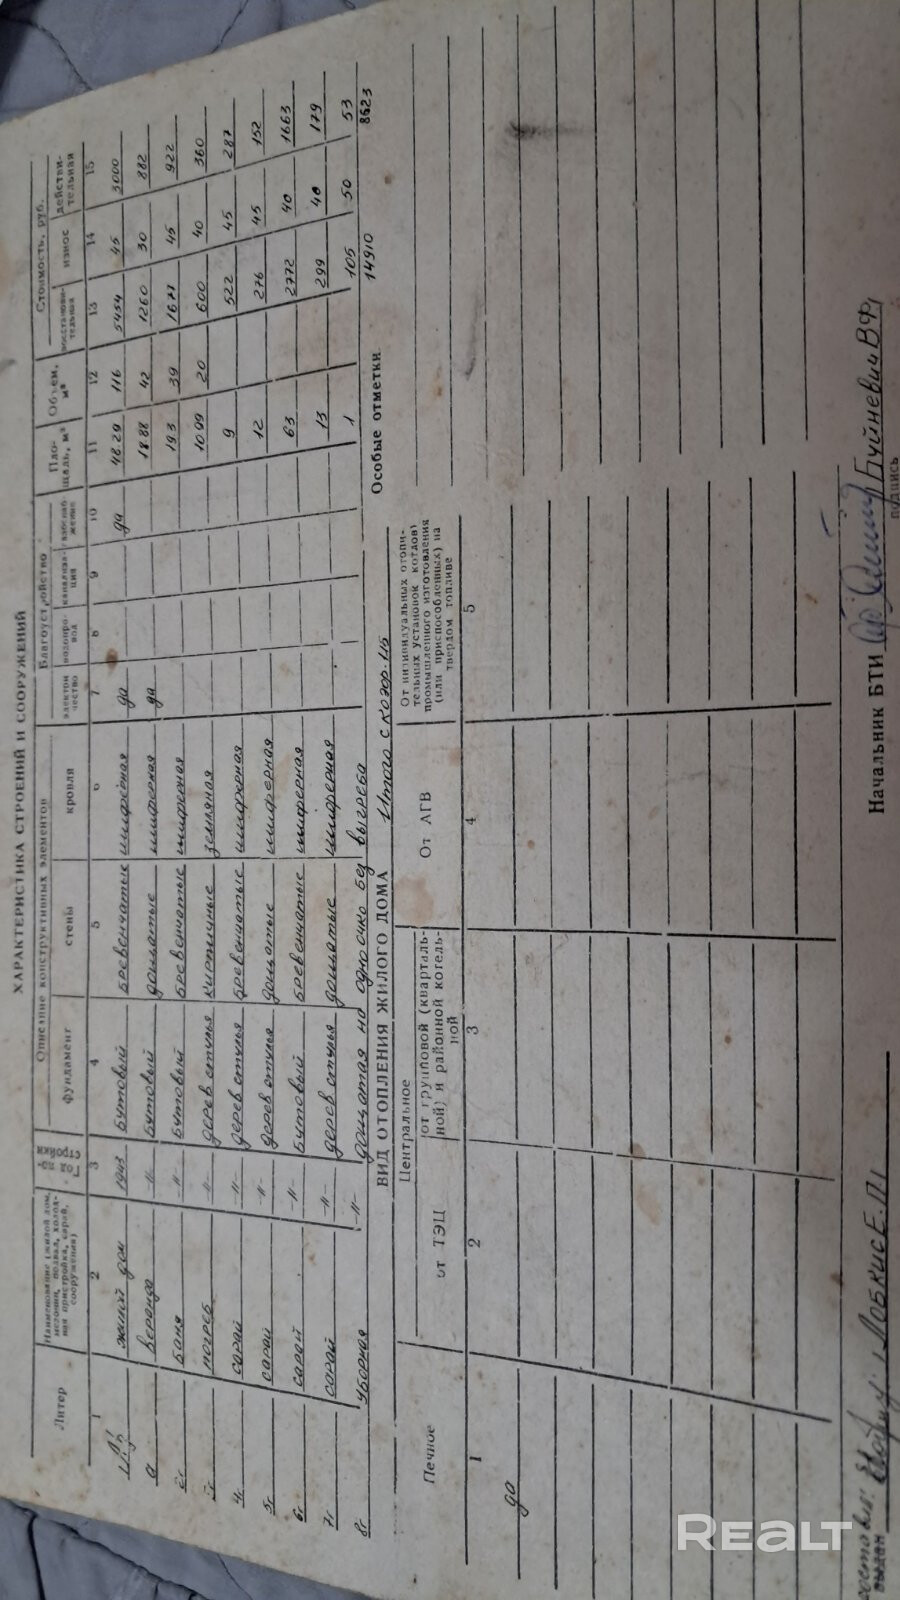 ХАРАКТЕРИСТИКА СТРОЕНИЙ И СООРУЖЕНИЙ
Литер
Наименование (жилой дом, мезонин, подвал, холодная пристройка, сарай, сооружения)
Год постройки
Описание конструктивных элементов
Фундамент
стены
кровля
Благоустройство
электричество
водопровод
канализация
Площадь, м²
Объем, м³
Стоимость, руб.
восстановительная
износ
действительная
1 2 3 4 5 6 7 8 9 10 11 12 13 14 15
жилой дом 1943 бутовый бревенчатые шиферная да да 48.29 116 5454 45 3000
а веранда -"- бутовый дощатые шиферная да 18.88 42 1260 30 882
баня -"- бутовый бревенчатые шиферная 19.3 39 1677 45 922
погреб -"- дерев стулья кирпичные земляная 10.99 20 600 40 360
4г сарай -"- дерев стулья бревенчатые шиферная 9 522 45 287
5г сарай -"- дерев стулья дощатые шиферная 12 276 45 152
6г сарай -"- бутовый бревенчатые шиферная 63 2772 40 1663
7г сарай -"- дерев стулья дощатые шиферная 13 299 40 179
8г уборная -"- дощатая на одно очко без выгреба 1 105 50 53
Итого с коэф. 1.15 14910 8623
ВИД ОТОПЛЕНИЯ ЖИЛОГО ДОМА
Особые отметки
Печное
Центральное
от ТЭЦ
от групповой (квартальной) и районной котельной
От АГВ
От индивидуальных отопительных установок котлов) промышленного изготовления (или приспособленных) на твердом топливе
1 2 3 4 5
да
Начальник БТИ Буйневич В.Ф.
подпись
выдан
Лобкис Е.П.
REALT